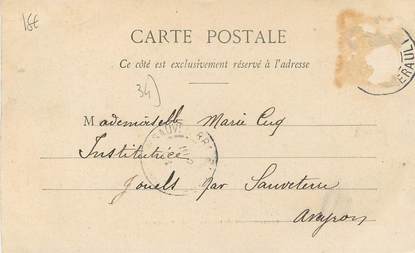 15€
CARTE POSTALE
Ce côté est exclusivement réservé à l'adresse
34)
HÉRAULT
Mademoiselle Marie Cuq
Institutrice
Jouels par Sauveterre
Aveyron